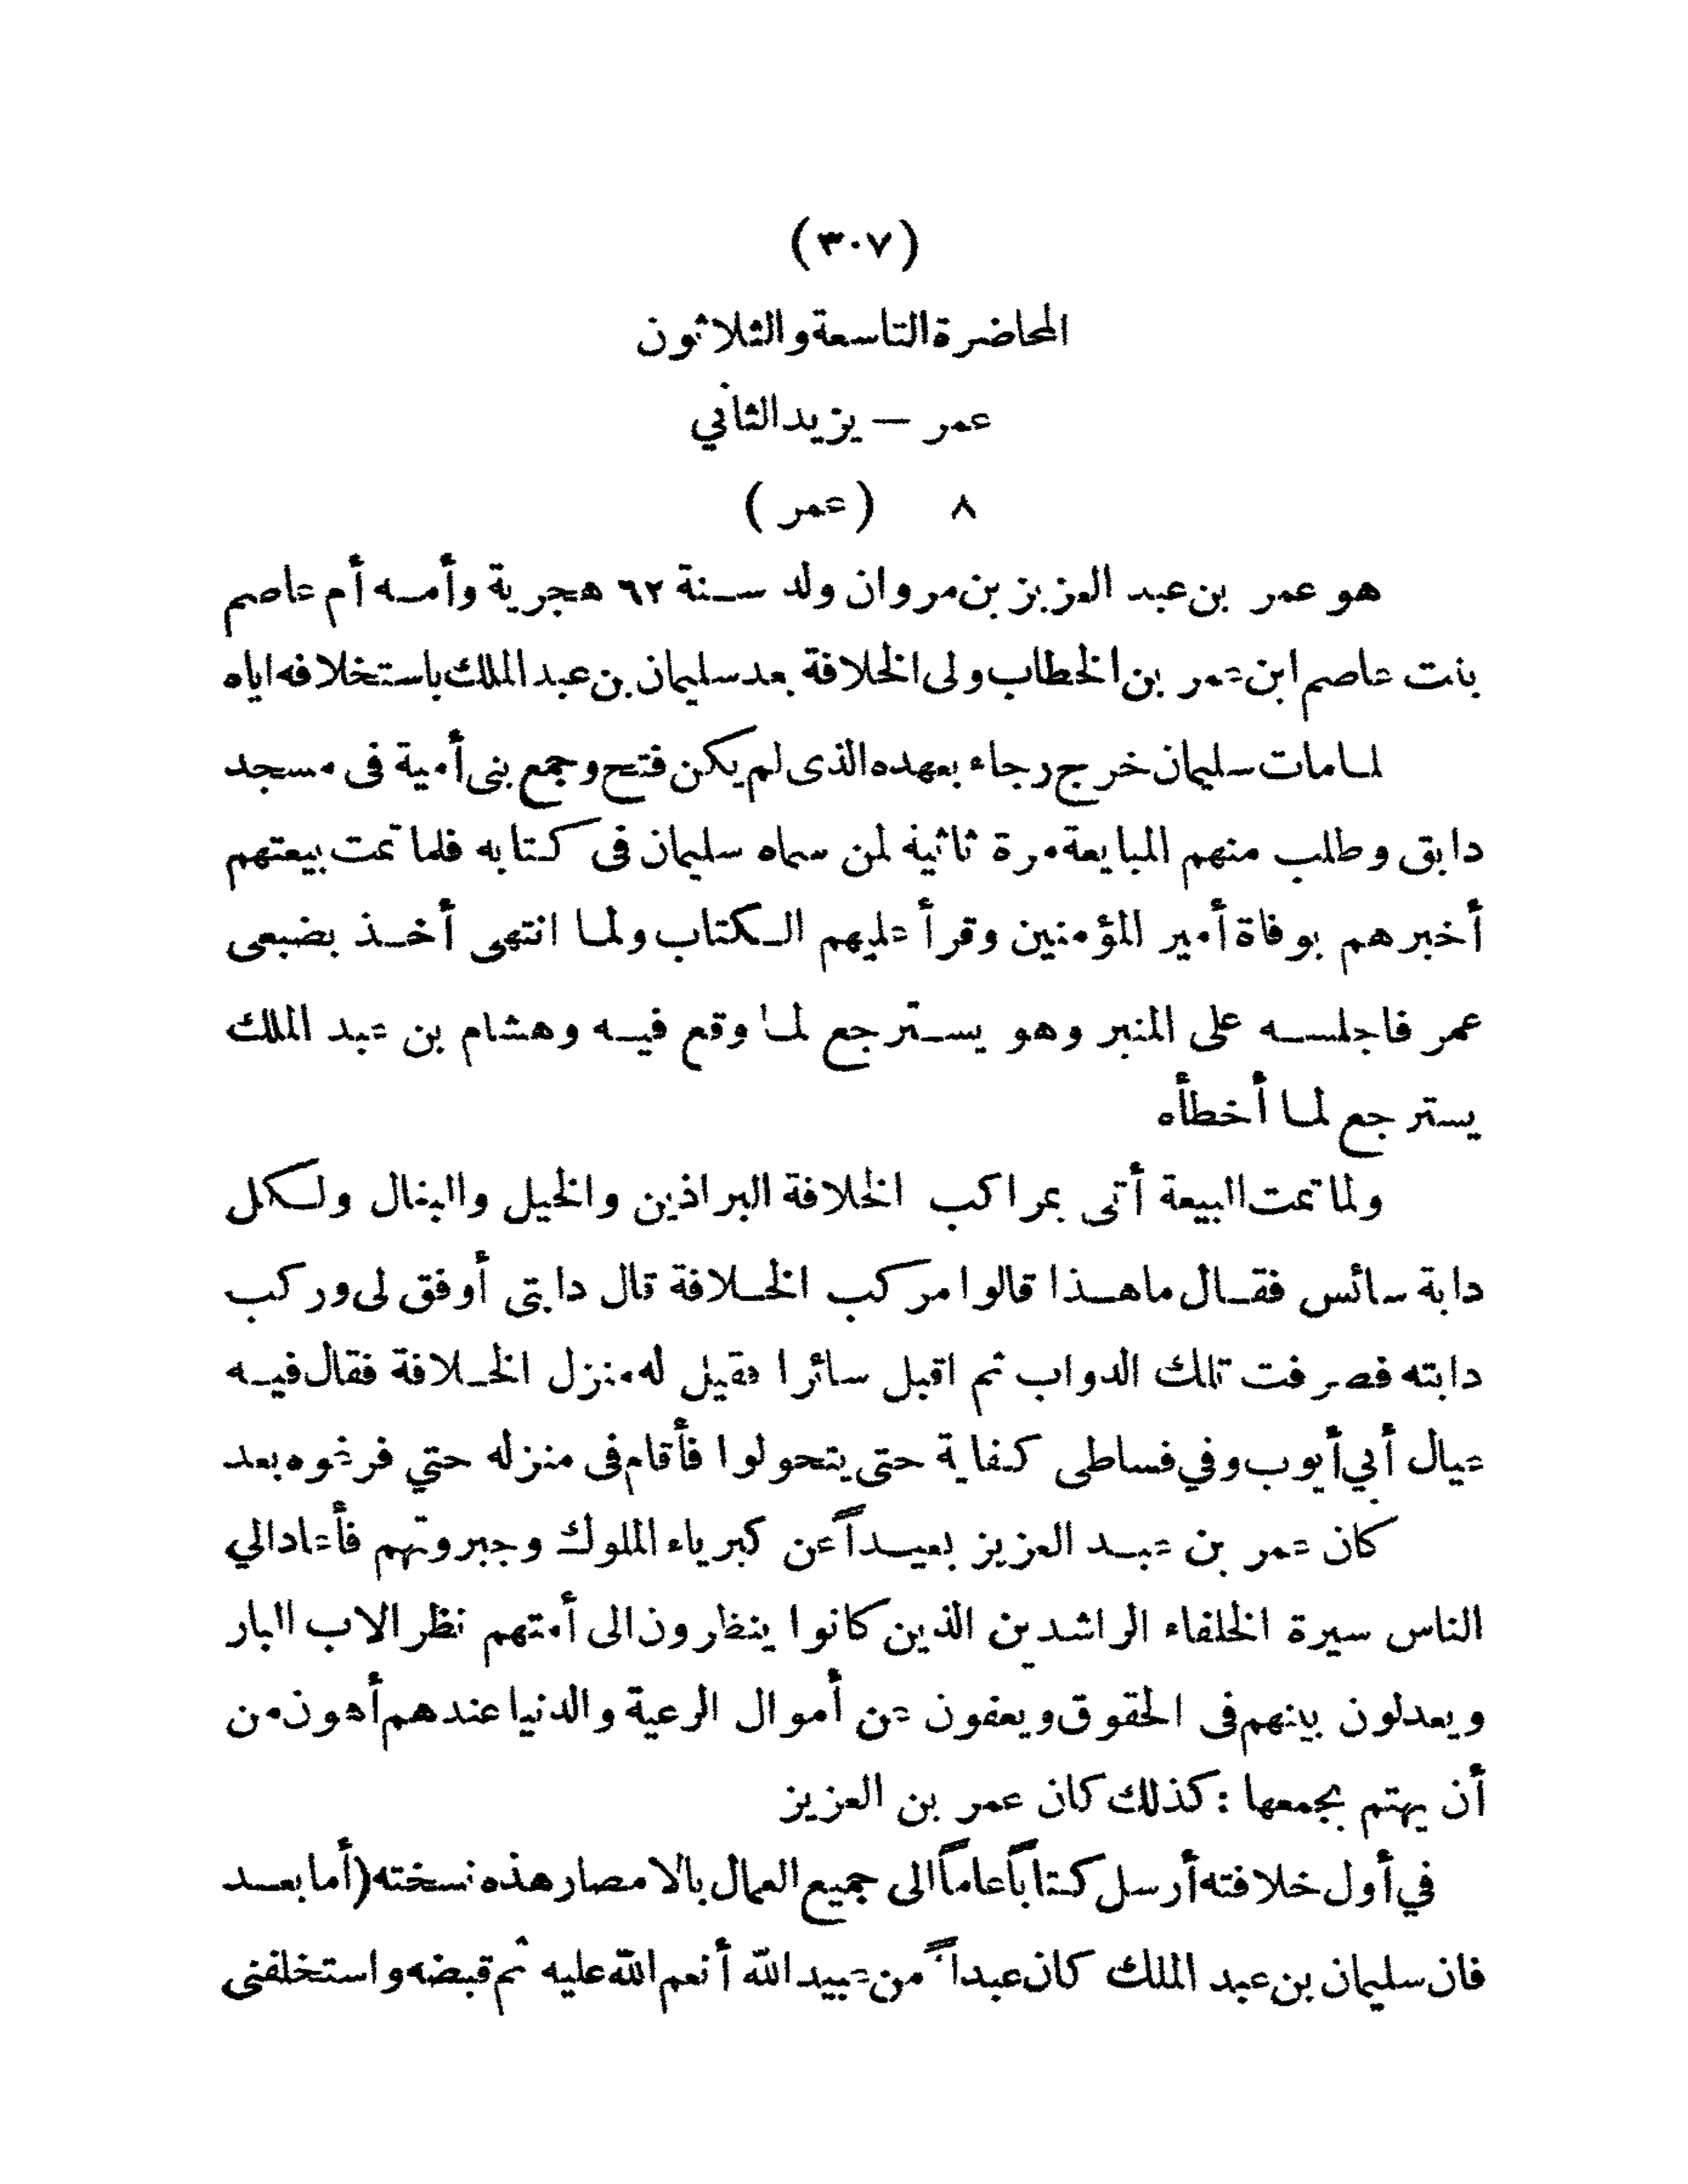 (٣٠٧)
المحاضرة التاسعة والثلاثون
عمر — يزيد الثاني
٨ (عمر)
هو عمر بن عبد العزيز بن مروان ولد سنة ٦٢ هجرية وأمه أم عاصم
بنت عاصم ابن عمر بن الخطاب ولى الخلافة بعد سليمان بن عبد الملك باستخلافه اياه
لما مات سليمان خرج رجاء بعهده الذى لم يكن فتح وجمع بنى أمية فى مسجد
دابق وطلب منهم المبايعة مرة ثانية لمن سماه سليمان فى كتابه فلما تمت بيعتهم
أخبرهم بوفاة أمير المؤمنين وقرأ عليهم الكتاب ولما انتهى أخذ بضبعى
عمر فاجلسه على المنبر وهو يسترجع لما وقع فيه وهشام بن عبد الملك
يسترجع لما أخطأه
ولما تمت البيعة أتى بمراكب الخلافة البراذين والخيل والبغال ولكل
دابة سائس فقال ما هذا قالوا مركب الخلافة قال دابتى أوفق لى وركب
دابته فصرفت تلك الدواب ثم اقبل سائرا فقيل له منزل الخلافة فقال فيه
عيال أبي أيوب وفي فساطى كفاية حتى يتحولوا فأقام فى منزله حتي فرغوه بعد
كان عمر بن عبد العزيز بعيداً عن كبرياء الملوك وجبروتهم فأعاد الي
الناس سيرة الخلفاء الراشدين الذين كانوا ينظرون الى أمتهم نظر الاب البار
ويعدلون بينهم فى الحقوق ويعفون عن أموال الرعية والدنيا عندهم أهون من
أن يهتم بجمعها : كذلك كان عمر بن العزيز
في أول خلافته أرسل كتاباً عاماً الى جميع العمال بالامصار هذه نسخته (أما بعد
فان سليمان بن عبد الملك كان عبداً من عبيد الله أنعم الله عليه ثم قبضه واستخلفنى